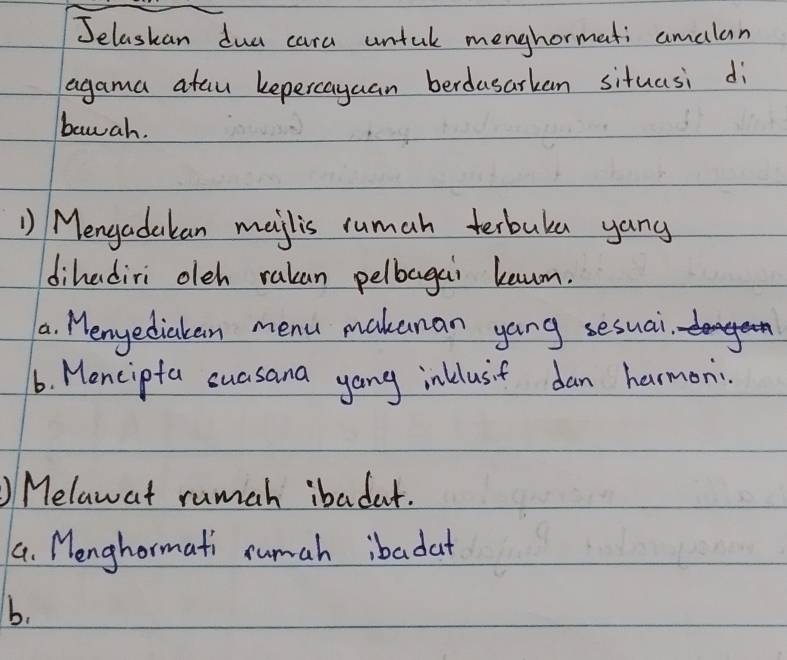 Jelaskan dua cara untuk menghormati amalan
agama atau kepercayaan berdasarkan situasi di
bawah.
1) Mengadakan majlis rumah terbuka yang
dihadiri oleh rakan pelbagai kaum.
a. Menyediakan menu makanan yang sesuai. dengan
b. Mencipta suasana yang inklusif dan harmoni.
) Melawat rumah ibadat.
a. Menghormati rumah ibadat
b.